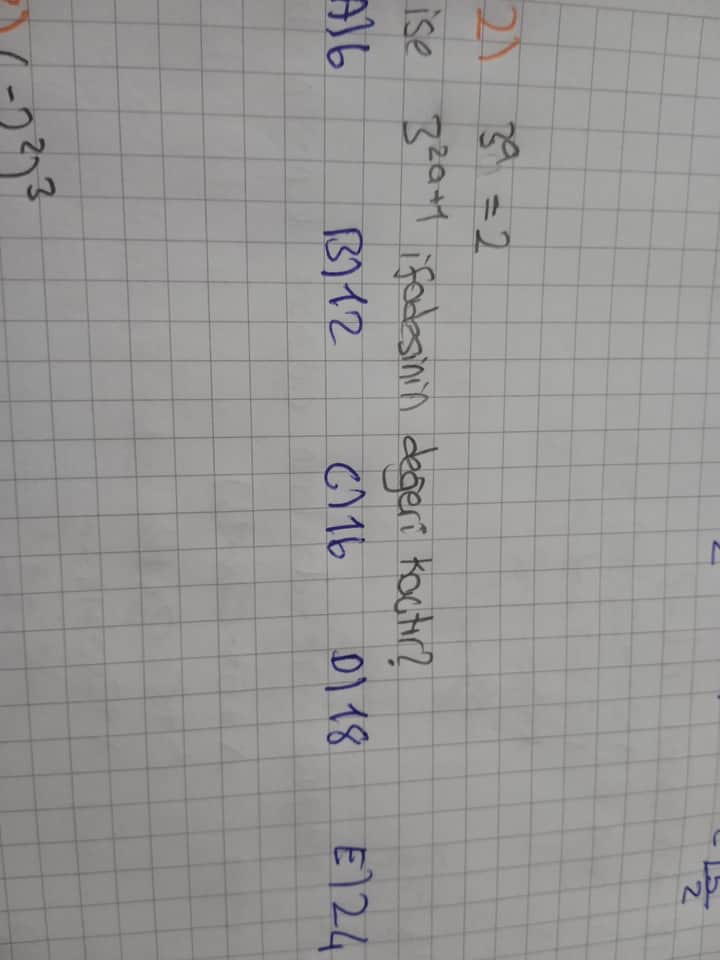 2) 3ᵃ = 2
ise 3²ᵃ⁺¹ ifadesinin değeri kaçtır?
A)6 B)12 C)16 D)18 E)24
(-2²)³